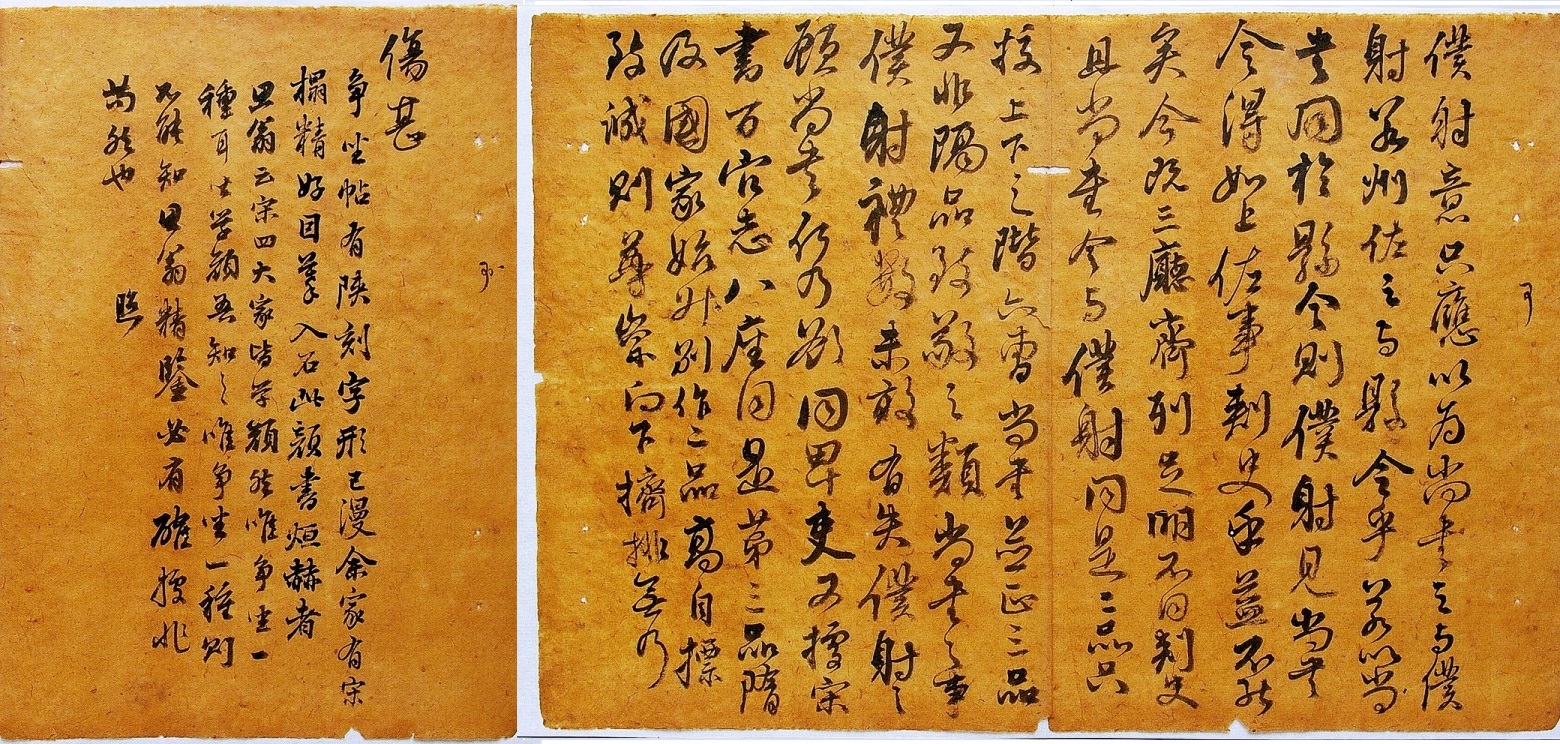 僕射意只應以為尚書之与僕
射若州佐之与縣令乎若以尚
書同於縣令則僕射見尚書
令得如上佐事刺史乎益不然
矣今既三廳齊列足明不同刺史
且尚書令与僕射同是二品只
校上下之階六曹尚書並正三品
又非隔品致敬之類尚書之事
僕射禮數未敢有失僕射之
顧尚書何乃欲同卑吏又據宋
書百官志八座同是第三品隋
及國家始升別作二品高自標
致誠則尊崇向下擠排無乃
傷甚
爭坐帖有陝刻字形已漫余家有宋
搨精好目摹入石此顏書烜赫者
思翁云宋四大家皆學顏然唯爭坐一
種耳士學顏吾知之唯爭坐一種則
不能知思翁精鑒必有確據非
苟然也
照